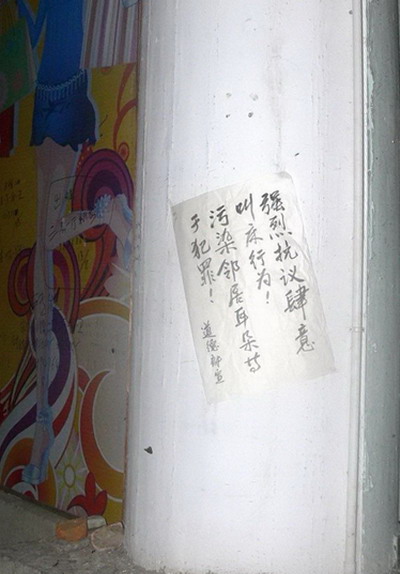 强烈抗议肆意
叫床行为！
污染邻居耳朵等
于犯罪！
道德部宣